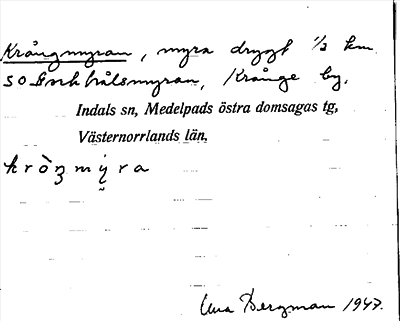 Krångmyran, myra drygt ½ km
SO hålsmyran, Krånge by,
Indals sn, Medelpads östra domsagas tg,
Västernorrlands län.
Bergman 1947.